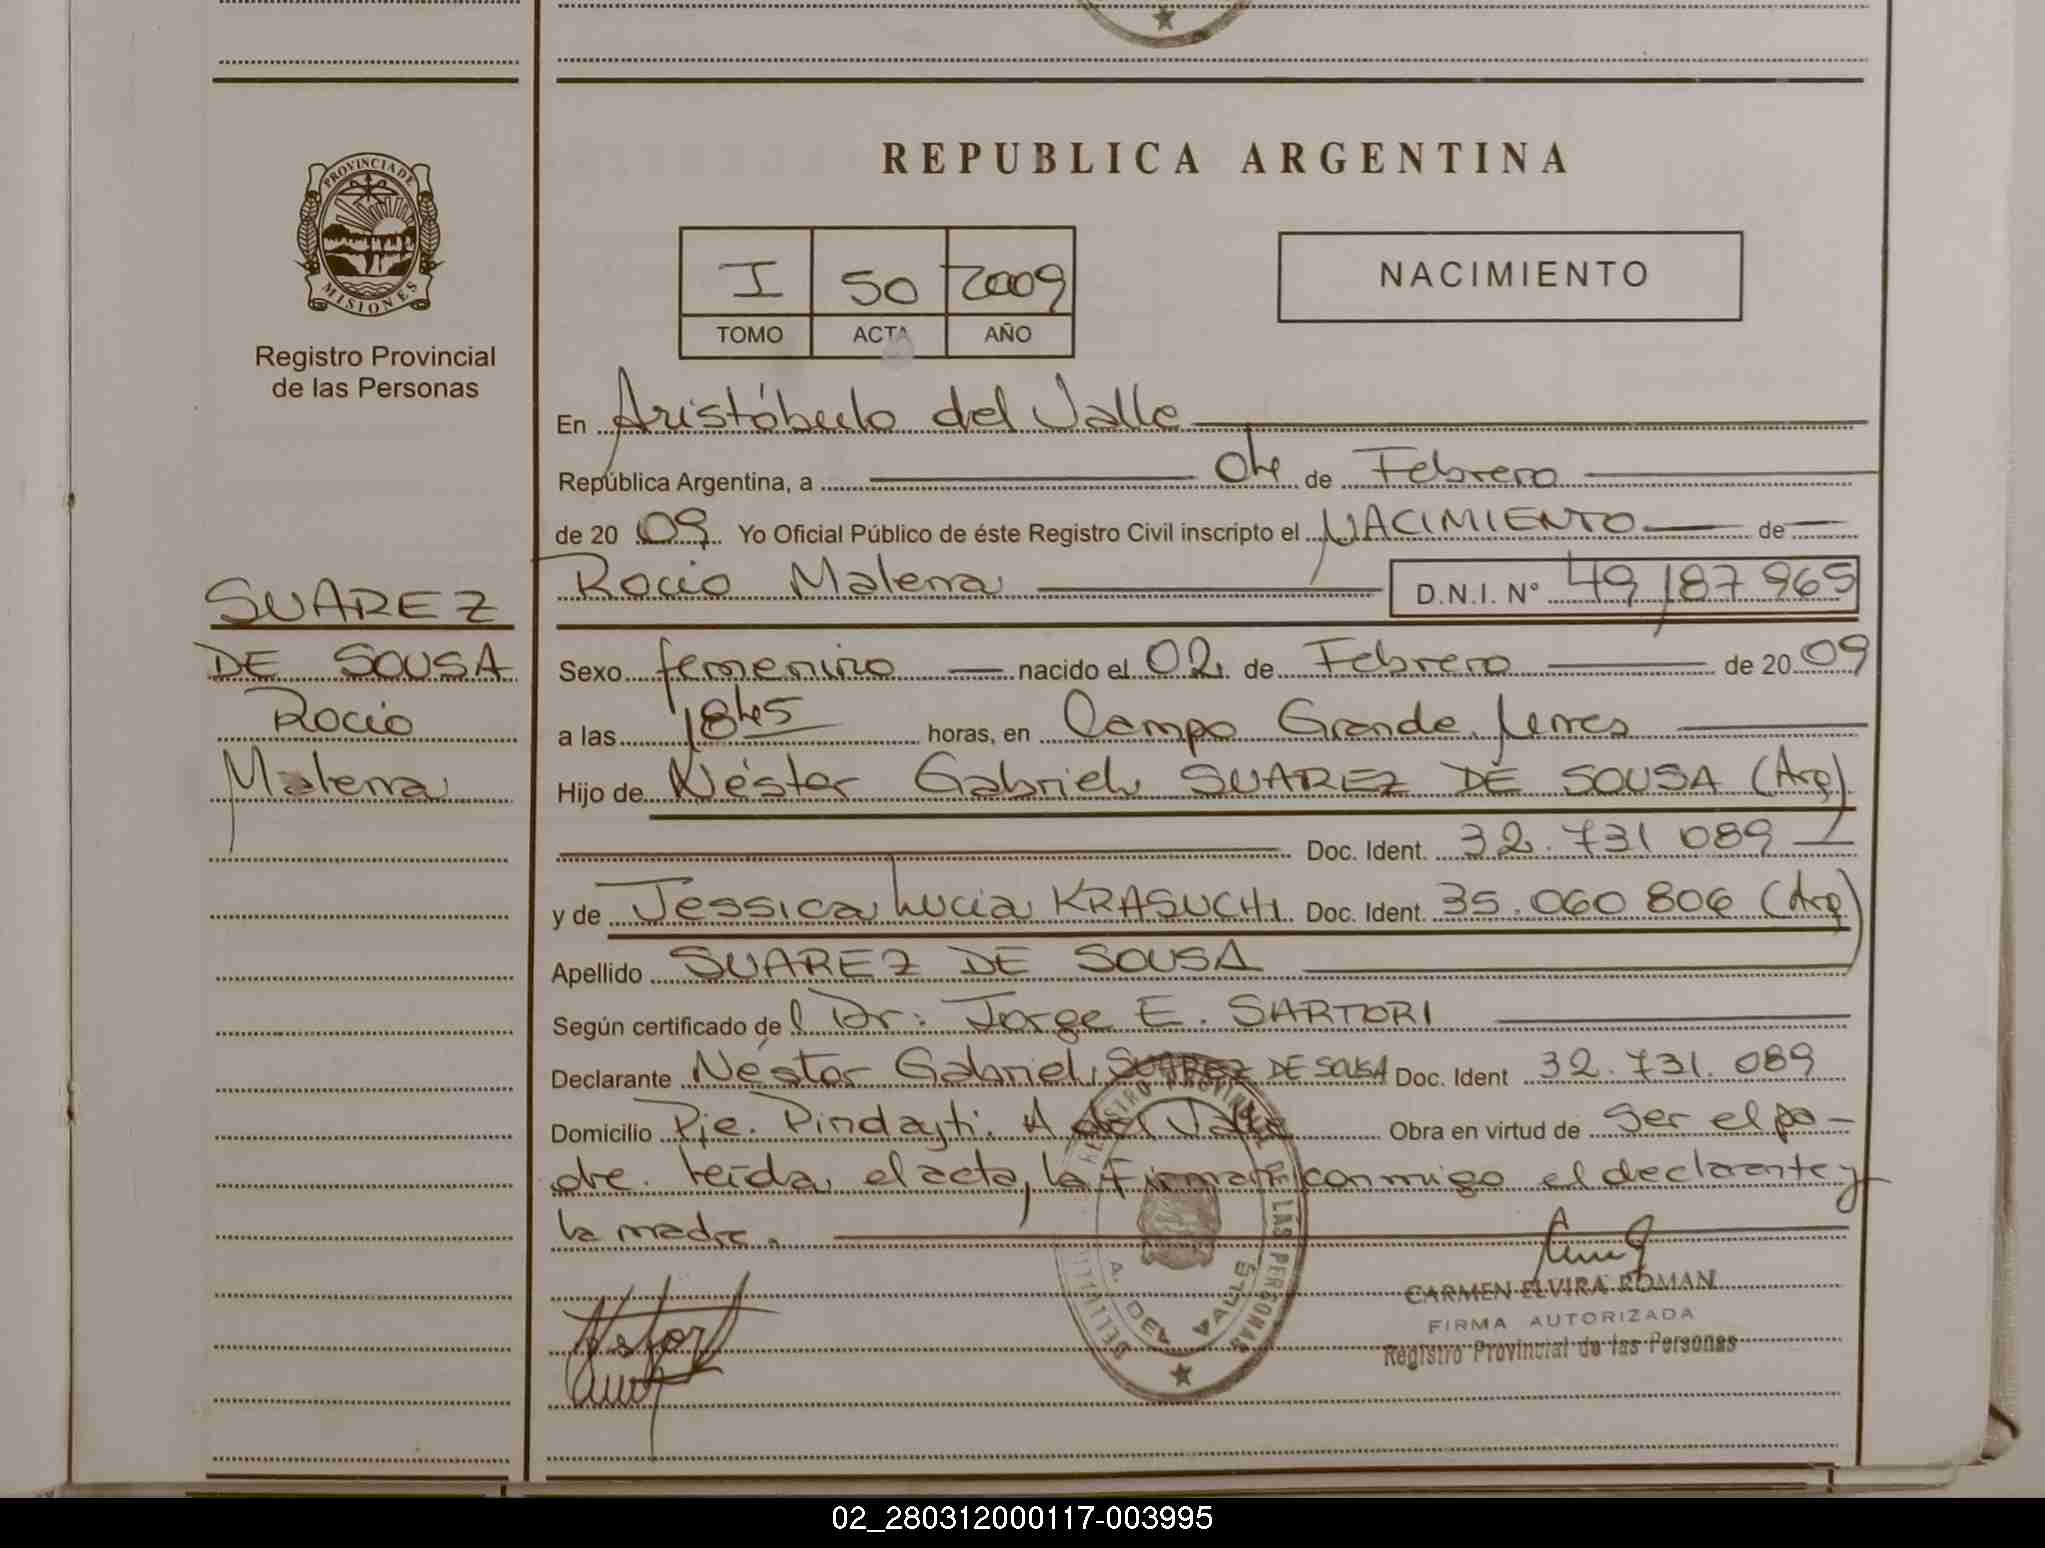 REPUBLICA ARGENTINA
PROVINCIA DE
MISIONES
Registro Provincial
de las Personas
I 50 2009
TOMO ACTA AÑO
NACIMIENTO
En Aristóbulo del Valle
República Argentina, a 04 de Febrero
de 2009 Yo Oficial Público de éste Registro Civil inscripto el NACIMIENTO de
Rocio Malena D.N.I. Nº 49 187 965
SUAREZ
DE SOUSA
Rocio
Malena
Sexo femenino nacido el 02 de Febrero de 2009
a las 18 45 horas, en Campo Grande
Hijo de Néstor Gabriel SUAREZ DE SOUSA (Arg)
Doc. Ident. 32.731 089
y de Jessica Lucia KRASUCHI Doc. Ident. 35.060 806 (Arg)
Apellido SUAREZ DE SOUSA
Según certificado del Dr: Jorge E. SARTORI
Declarante Néstor Gabriel SUAREZ DE SOUSA Doc. Ident 32.731.089
Domicilio Pje. Pindayti. A del Valle Obra en virtud de ser el pa-
dre. Leída el acta, la Firman conmigo el declarante y
la madre.
REGISTRO PROVINCIAL DE LAS PERSONAS
A. DEL VALLE
CARMEN ELVIRA ROMAN
FIRMA AUTORIZADA
Registro Provincial de las Personas
02_280312000117-003995